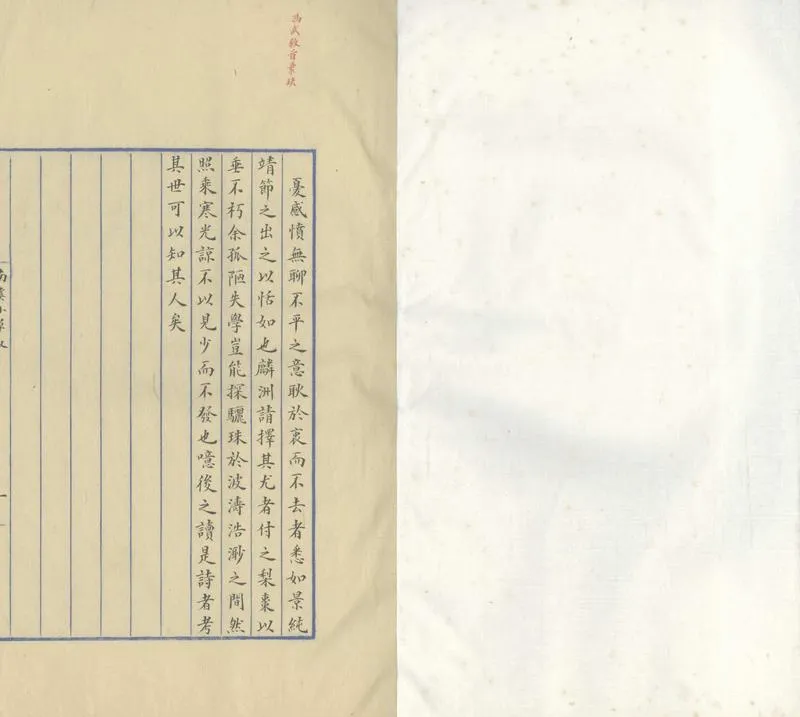 馮武敘首葉缺
憂感憤無聊不平之意耿於衷而不去者悉如景純
靖節之出之以恬如也麟洲請擇其尤者付之梨棗以
垂不朽余孤陋失學豈能探驪珠於波濤浩渺之間然
照乘寒光諒不以見少而不發也噫後之讀是詩者考
其世可以知其人矣
一